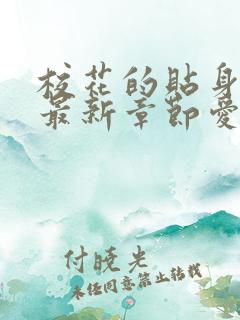 校花的贴身
最新章节爱
付晓光
未经同意禁止转载